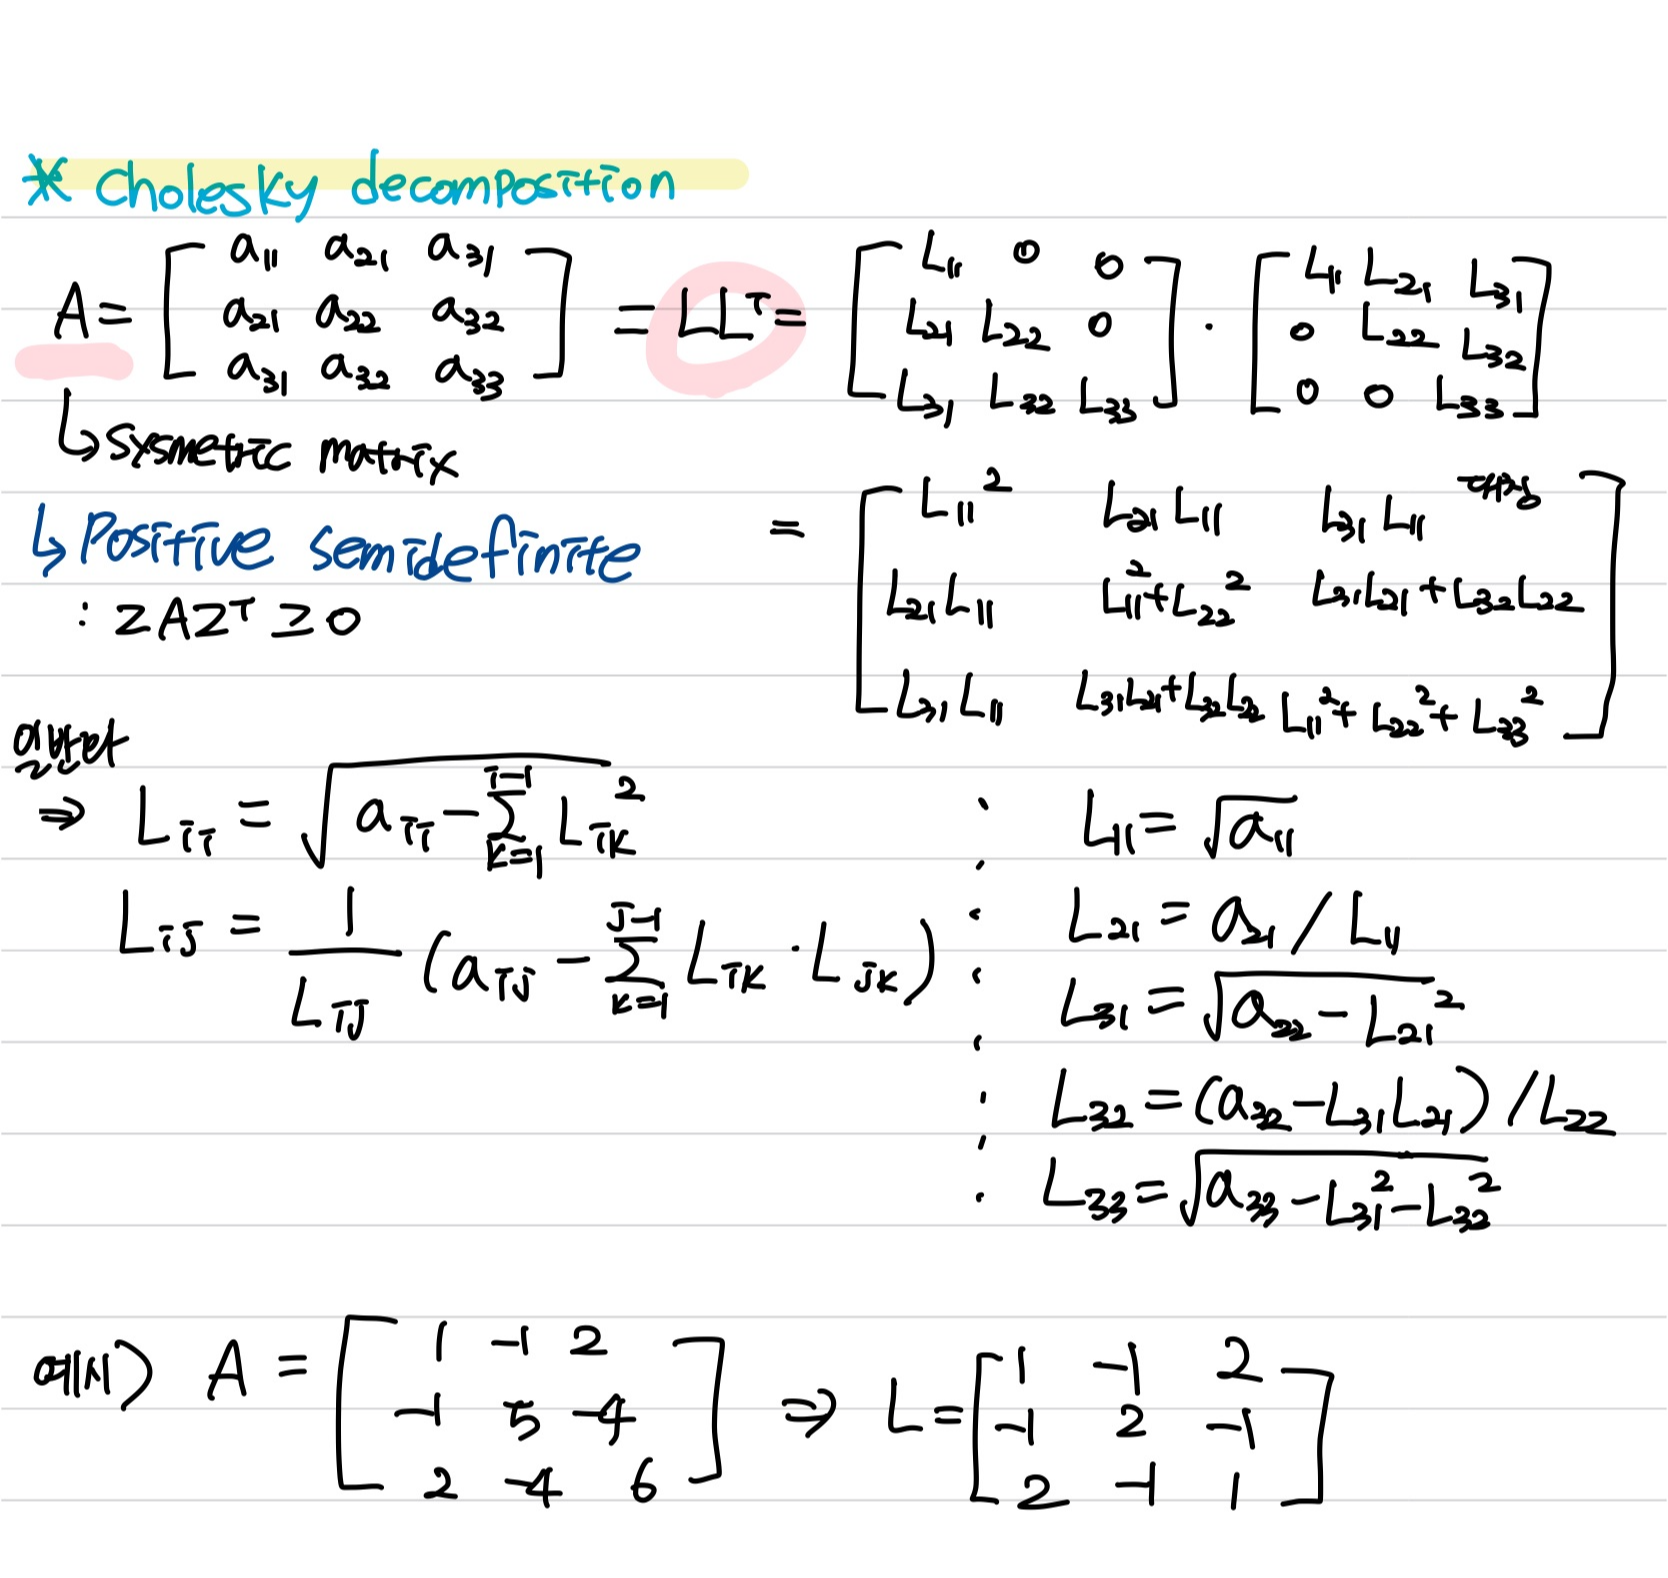 * Cholesky decomposition
A = [ a₁₁ a₂₁ a₃₁ ; a₂₁ a₂₂ a₃₂ ; a₃₁ a₃₂ a₃₃ ] = LLᵀ = [ L₁₁ 0 0 ; L₂₁ L₂₂ 0 ; L₃₁ L₃₂ L₃₃ ] · [ L₁₁ L₂₁ L₃₁ ; 0 L₂₂ L₃₂ ; 0 0 L₃₃ ]
↳ sysmetric matrix
↳ Positive semidefinite
: ZAZᵀ ≥ 0
= [ L₁₁² L₂₁L₁₁ L₃₁L₁₁ 대칭 ; L₂₁L₁₁ L₁₁²+L₂₂² L₃₁L₂₁+L₃₂L₂₂ ; L₃₁L₁₁ L₃₁L₂₁+L₃₂L₂₂ L₁₁²+L₂₂²+L₃₃² ]
일반화
⇒ Lᵢᵢ = √(aᵢᵢ - Σₖ₌₁ⁱ⁻¹ Lᵢₖ²)
Lᵢⱼ = 1/Lᵢⱼ (aᵢⱼ - Σₖ₌₁ʲ⁻¹ Lᵢₖ · Lⱼₖ)
L₁₁ = √a₁₁
L₂₁ = a₂₁ / L₁₁
L₃₁ = √(a₂₂ - L₂₁²)
L₃₂ = (a₃₂ - L₃₁L₂₁) / L₂₂
L₃₃ = √(a₃₃ - L₃₁² - L₃₂²)
예시) A = [ 1 -1 2 ; -1 5 -4 ; 2 -4 6 ] ⇒ L = [ 1 -1 2 ; -1 2 -1 ; 2 -1 1 ]